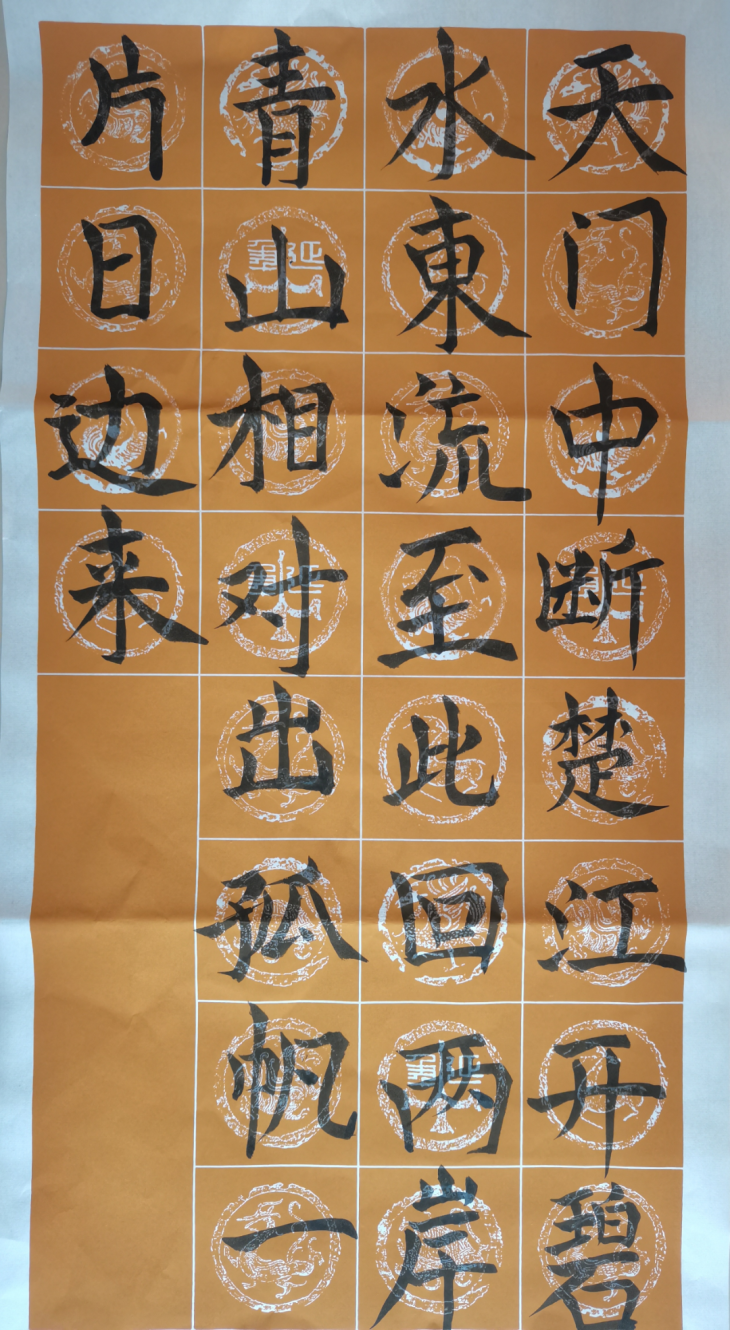 天门中断楚江开碧
水東流至此回两岸
青山相对出孤帆一
片日边来